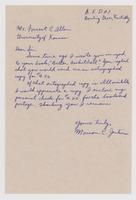 R.F.D #1
Bowling Green, Kentucky
Mr. Forrest C. Allen
University of Kansas
Dear Sir,
Some time ago I wrote you in regard
to your book "Better Basketball". You replied
that you would send me an autographed
copy for
If that autographed copy is still available
I would appreciate a copy. I enclose my
personal check for
postage. Thanking you I remain
Yours truly,
Marion C.